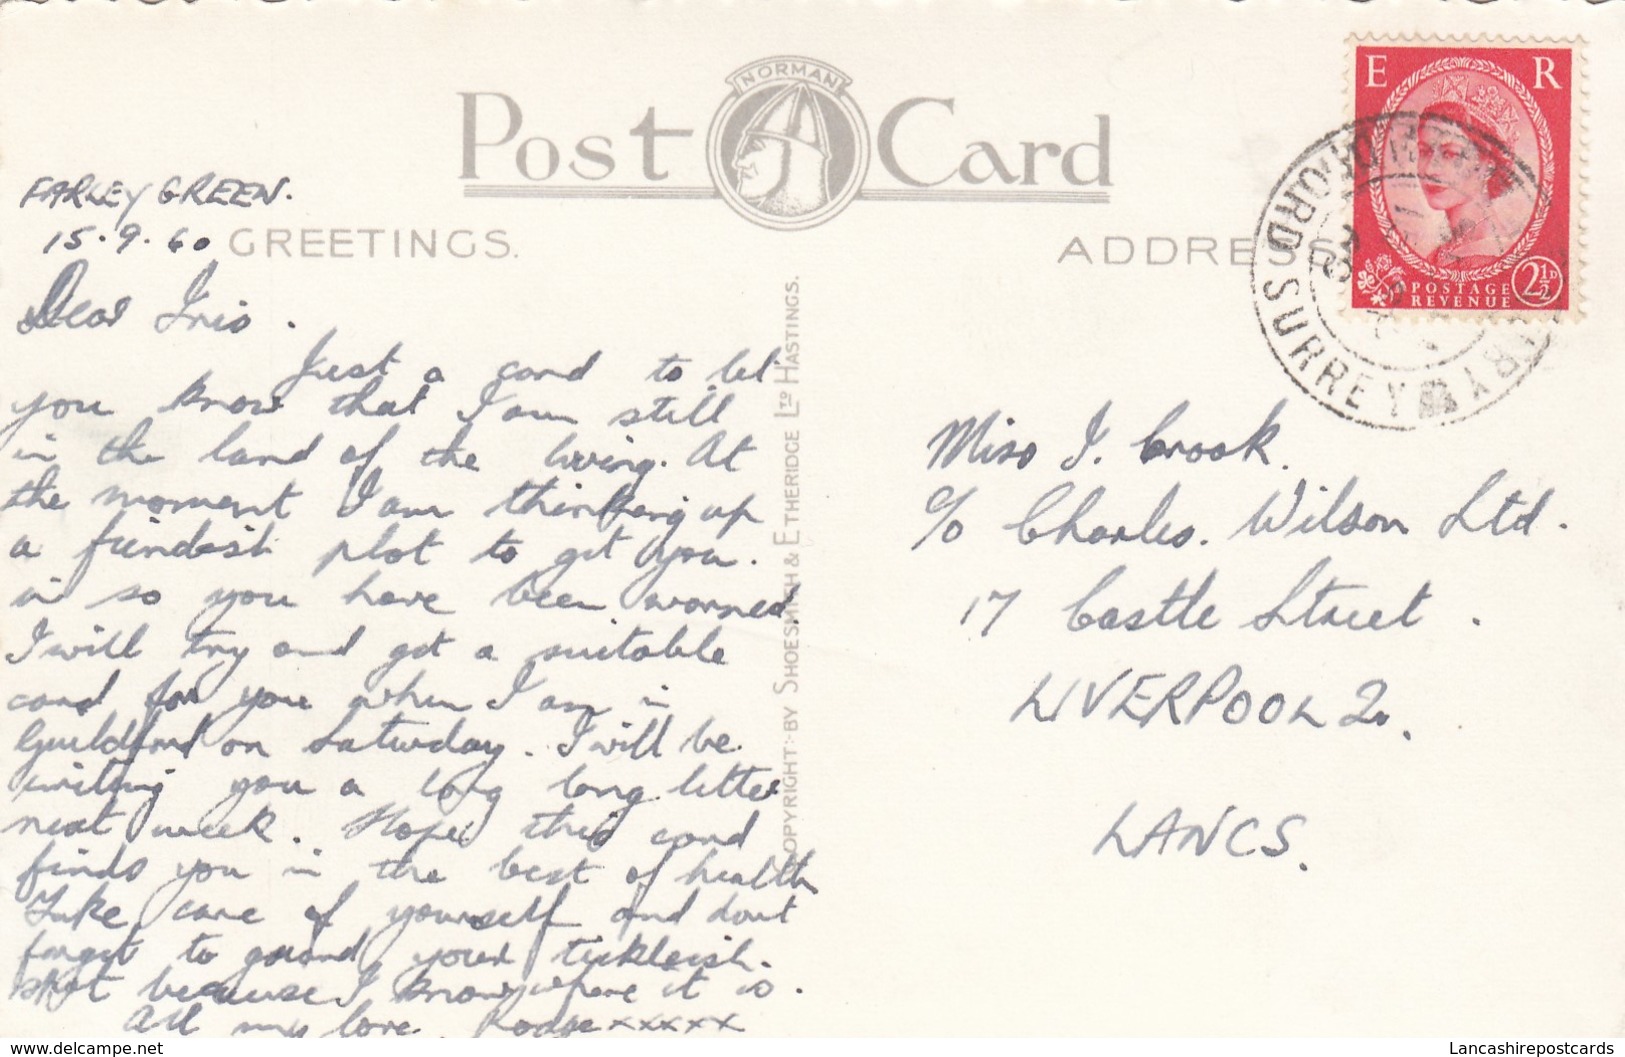 POST CARD
NORMAN
FARLEY GREEN.
15.9.60
GREETINGS.
ADDRESS
E R
POSTAGE
REVENUE
2½D
SURREY
Dear Iris.
Just a card to let
you know that I am still
in the land of the living. At
the moment I am thinking up
a fiendish plot to get you.
in so you have been warned
I will try and get a suitable
card for you when I am in
Guildford on Saturday. I will be
writing you a long long letter
next week. Hope this card
finds you in the best of health
Take care of yourself and dont
forget to guard your tickleish.
spot because I know where it is.
All my love. Rodge xxxxx
COPYRIGHT:-BY SHOESMITH & ETHERIDGE LTD HASTINGS.
Miss I. Crook.
c/o Charles. Wilson Ltd.
17 Castle Street.
LIVERPOOL 2.
LANCS.
https://www.delcampe.net
Lancashirepostcards